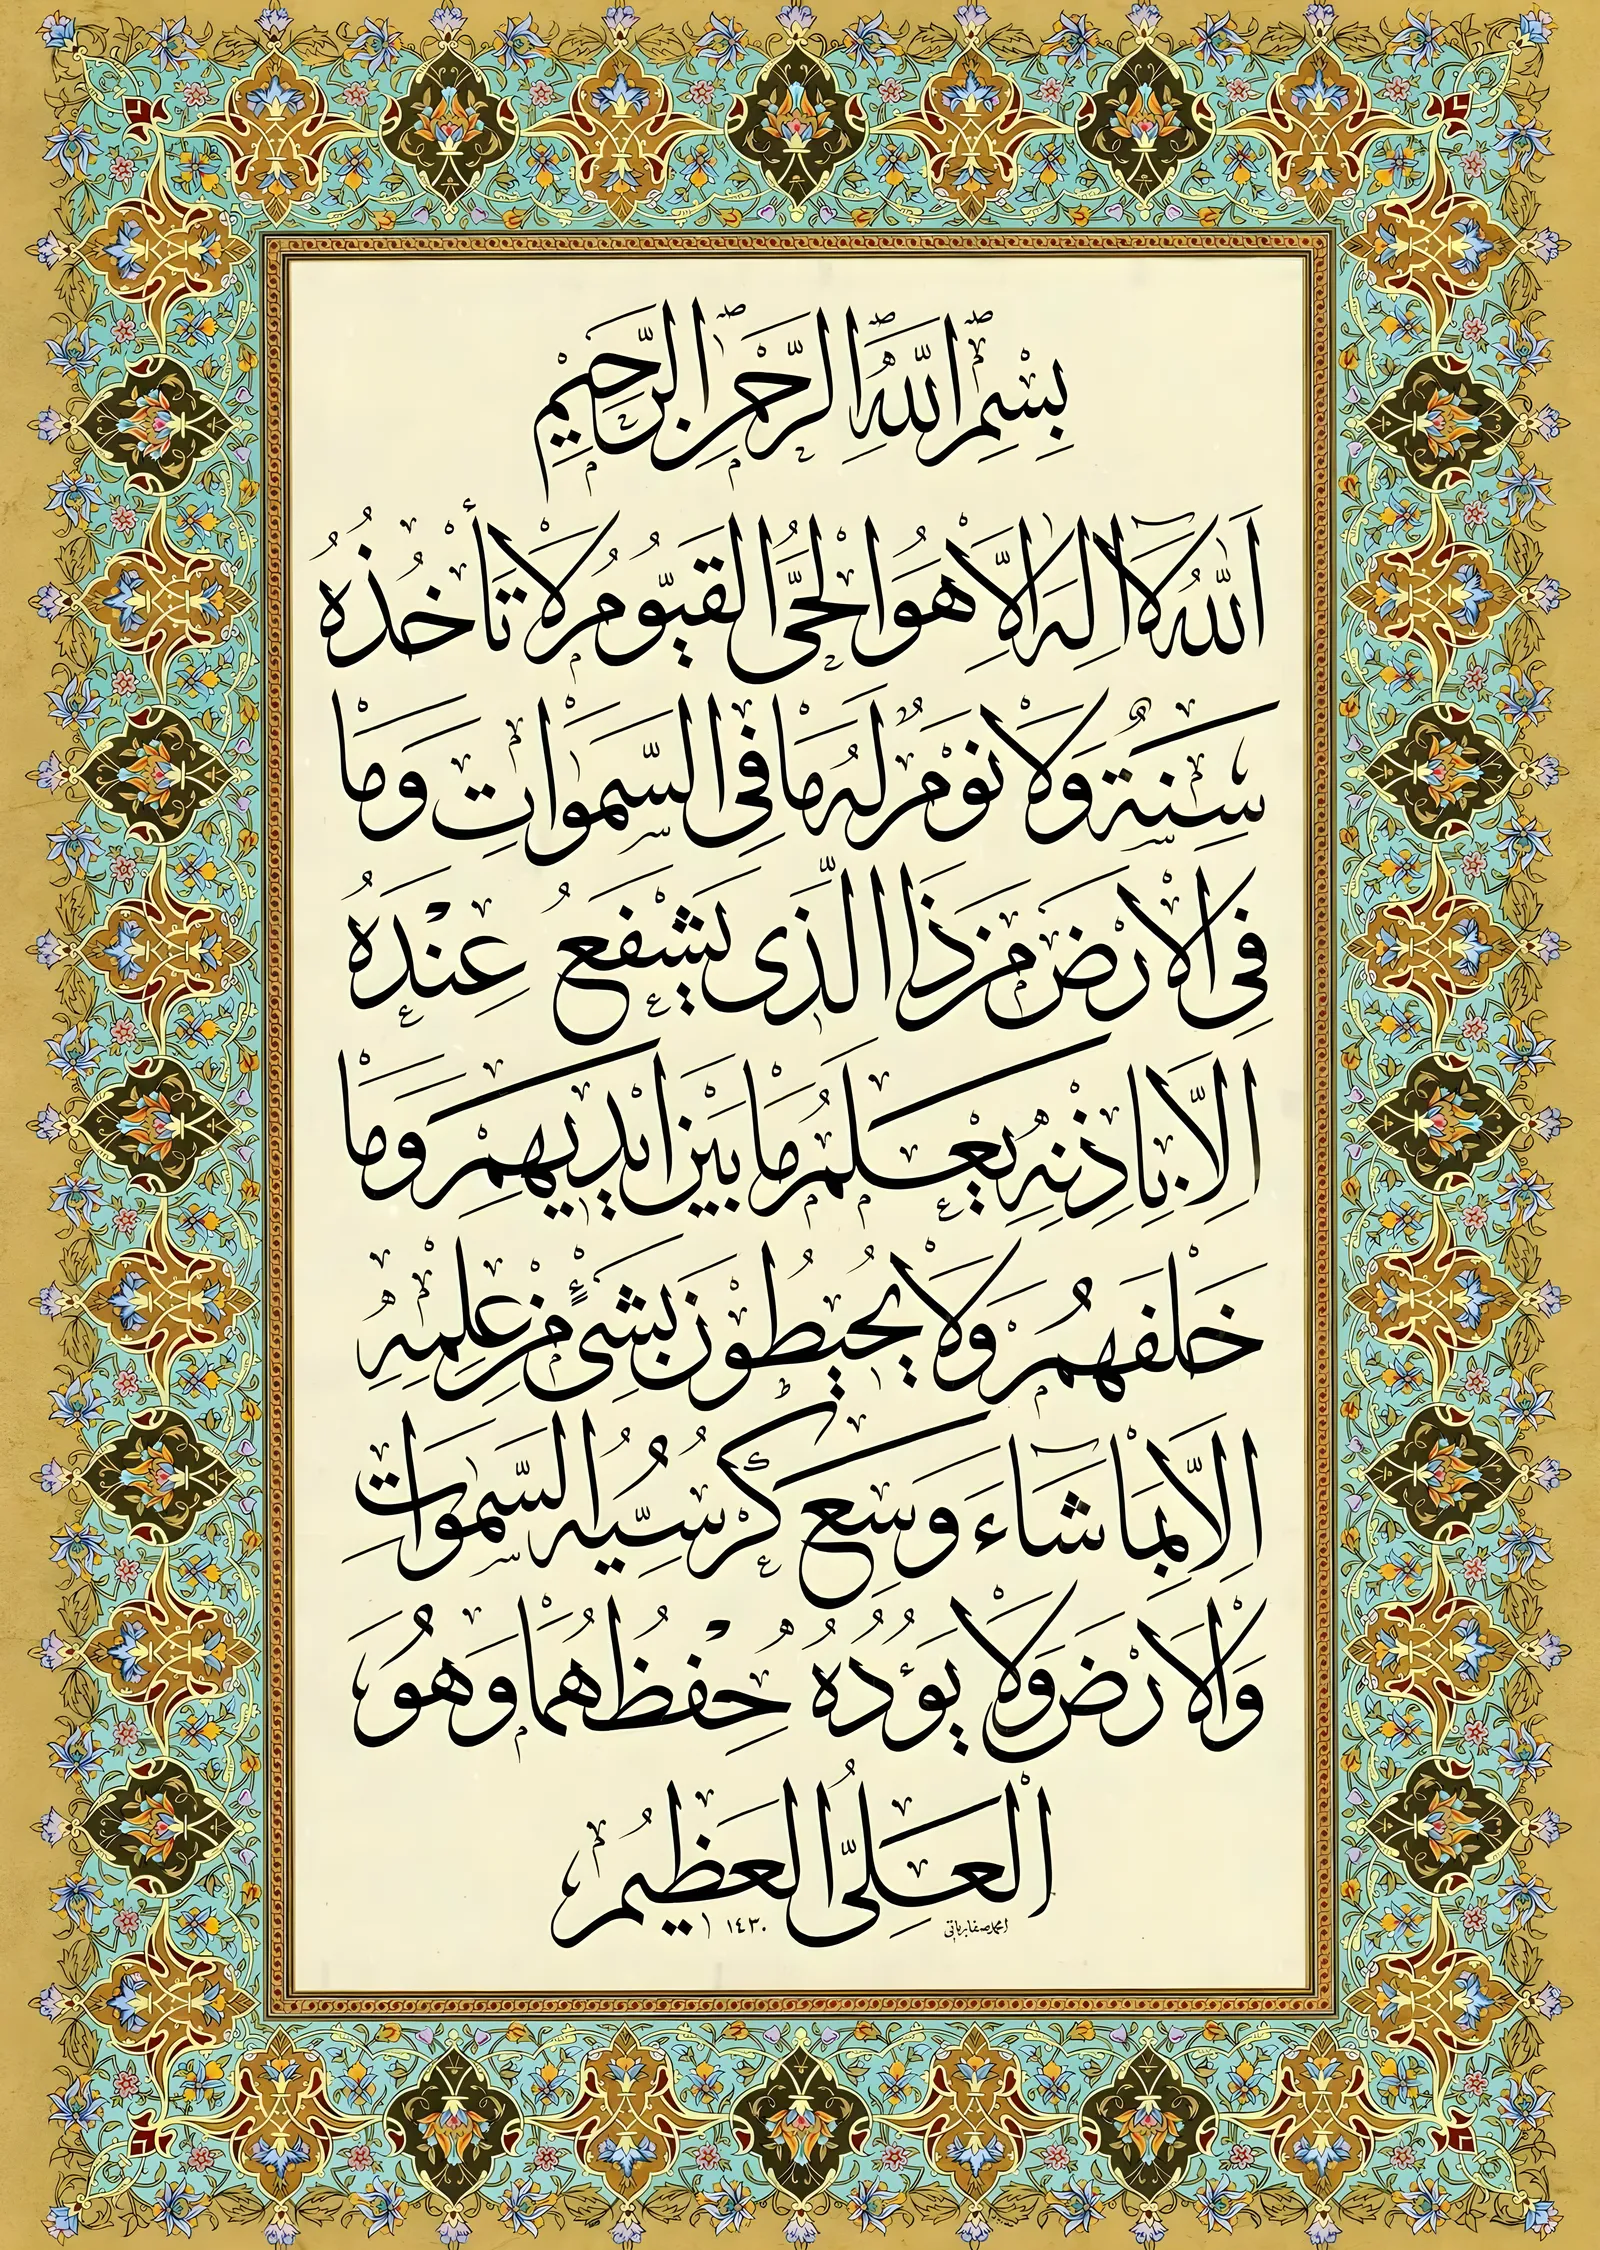 بِسْمِ اللّٰهِ الرَّحْمٰنِ الرَّحِيمِ
اَللّٰهُ لَا اِلٰهَ اِلَّا هُوَ الْحَىُّ الْقَيُّومُ لَا تَأْخُذُهُ
سِنَةٌ وَلَا نَوْمٌ لَهُ مَا فِى السَّمٰوَاتِ وَمَا
فِى الْاَرْضِ مَنْ ذَا الَّذِى يَشْفَعُ عِنْدَهُ
اِلَّا بِاِذْنِهِ يَعْلَمُ مَا بَيْنَ اَيْدِيهِمْ وَمَا
خَلْفَهُمْ وَلَا يُحِيطُونَ بِشَىْءٍ مِنْ عِلْمِهِ
اِلَّا بِمَا شَاءَ وَسِعَ كُرْسِيُّهُ السَّمٰوَاتِ
وَالْاَرْضَ وَلَا يَؤُدُهُ حِفْظُهُمَا وَهُوَ
الْعَلِىُّ الْعَظِيمُ
١٤٣٠